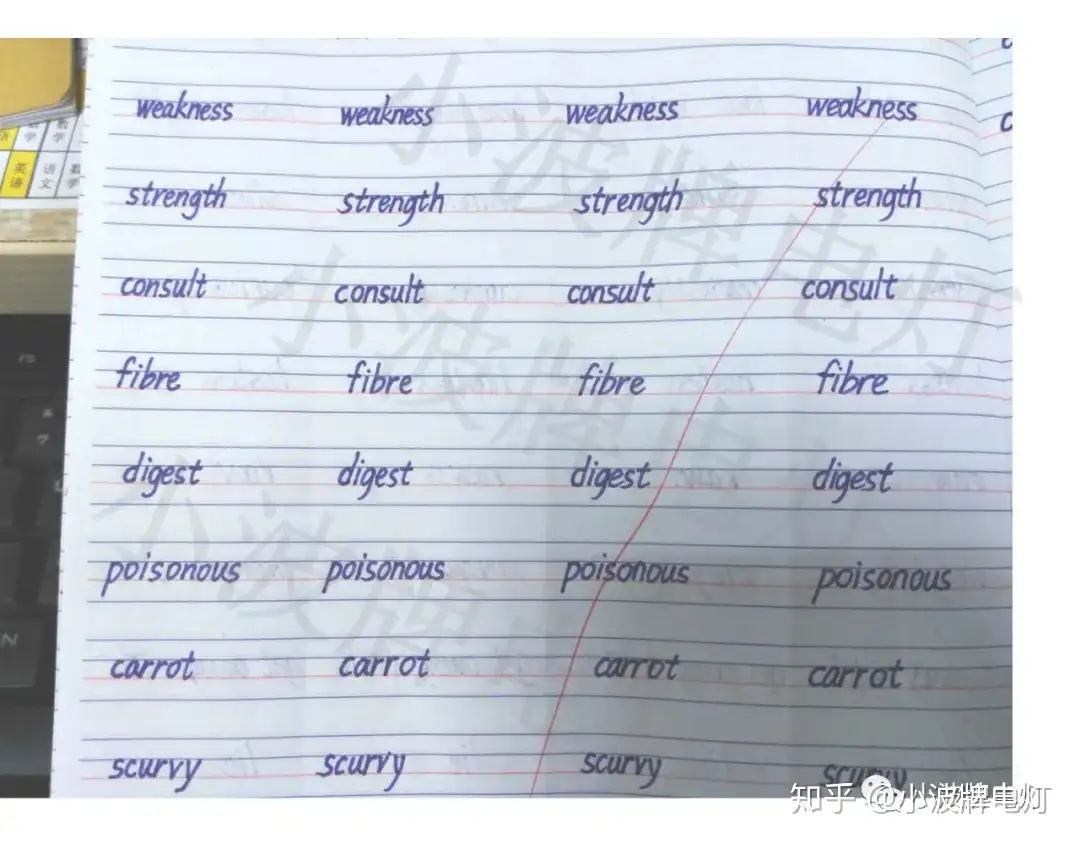 weakness weakness weakness weakness
strength strength strength strength
consult consult consult consult
fibre fibre fibre fibre
digest digest digest digest
poisonous poisonous poisonous poisonous
carrot carrot carrot carrot
scurvy scurvy scurvy scurvy
数学 数学
英语 语文 数学
小波牌电灯
小波牌电灯
小波牌电
知乎 @小波牌电灯